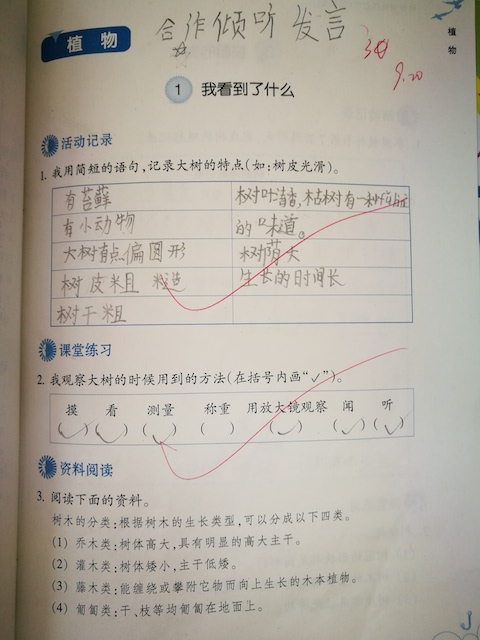 合作倾听 发言
植物
植物
3
9.20
1 我看到了什么
活动记录
1. 我用简短的语句,记录大树的特点(如:树皮光滑)。
有苔藓
树叶清香,枯树有一种
有小动物
的味道。
大树有点偏圆形
树荫大
树皮粗 糙
生长的时间长
树干粗
课堂练习
2. 我观察大树的时候用到的方法(在括号内画“✓”)。
摸 看 测量 称重 用放大镜观察 闻 听
(✓) (✓) (✓) ( ) (✓) (✓) (✓)
资料阅读
3. 阅读下面的资料。
树木的分类:根据树木的生长类型,可以分成以下四类。
(1) 乔木类:树体高大,具有明显的高大主干。
(2) 灌木类:树体矮小,主干低矮。
(3) 藤木类:能缠绕或攀附它物而向上生长的木本植物。
(4) 匍匐类:干、枝等均匍匐在地面上。